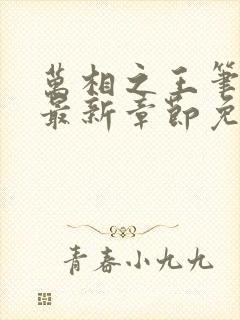 萬相之王筆
最新章節免
青春小九九